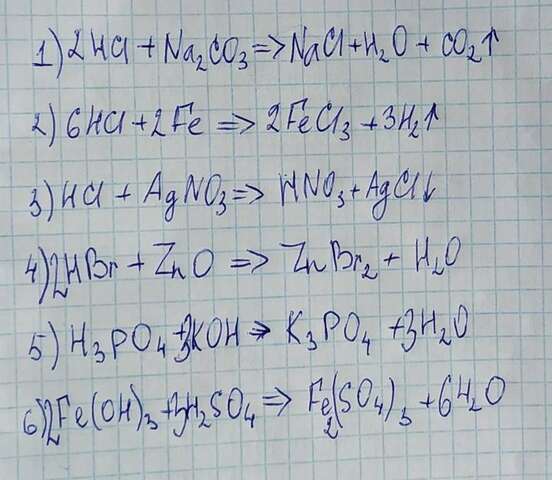 1) 2HCl + Na₂CO₃ => NaCl + H₂O + CO₂↑
2) 6HCl + 2Fe => 2FeCl₃ + 3H₂↑
3) HCl + AgNO₃ => HNO₃ + AgCl↓
4) 2HBr + ZnO => ZnBr₂ + H₂O
5) H₃PO₄ + 3KOH => K₃PO₄ + 3H₂O
6) 2Fe(OH)₃ + 3H₂SO₄ => Fe₂(SO₄)₃ + 6H₂O